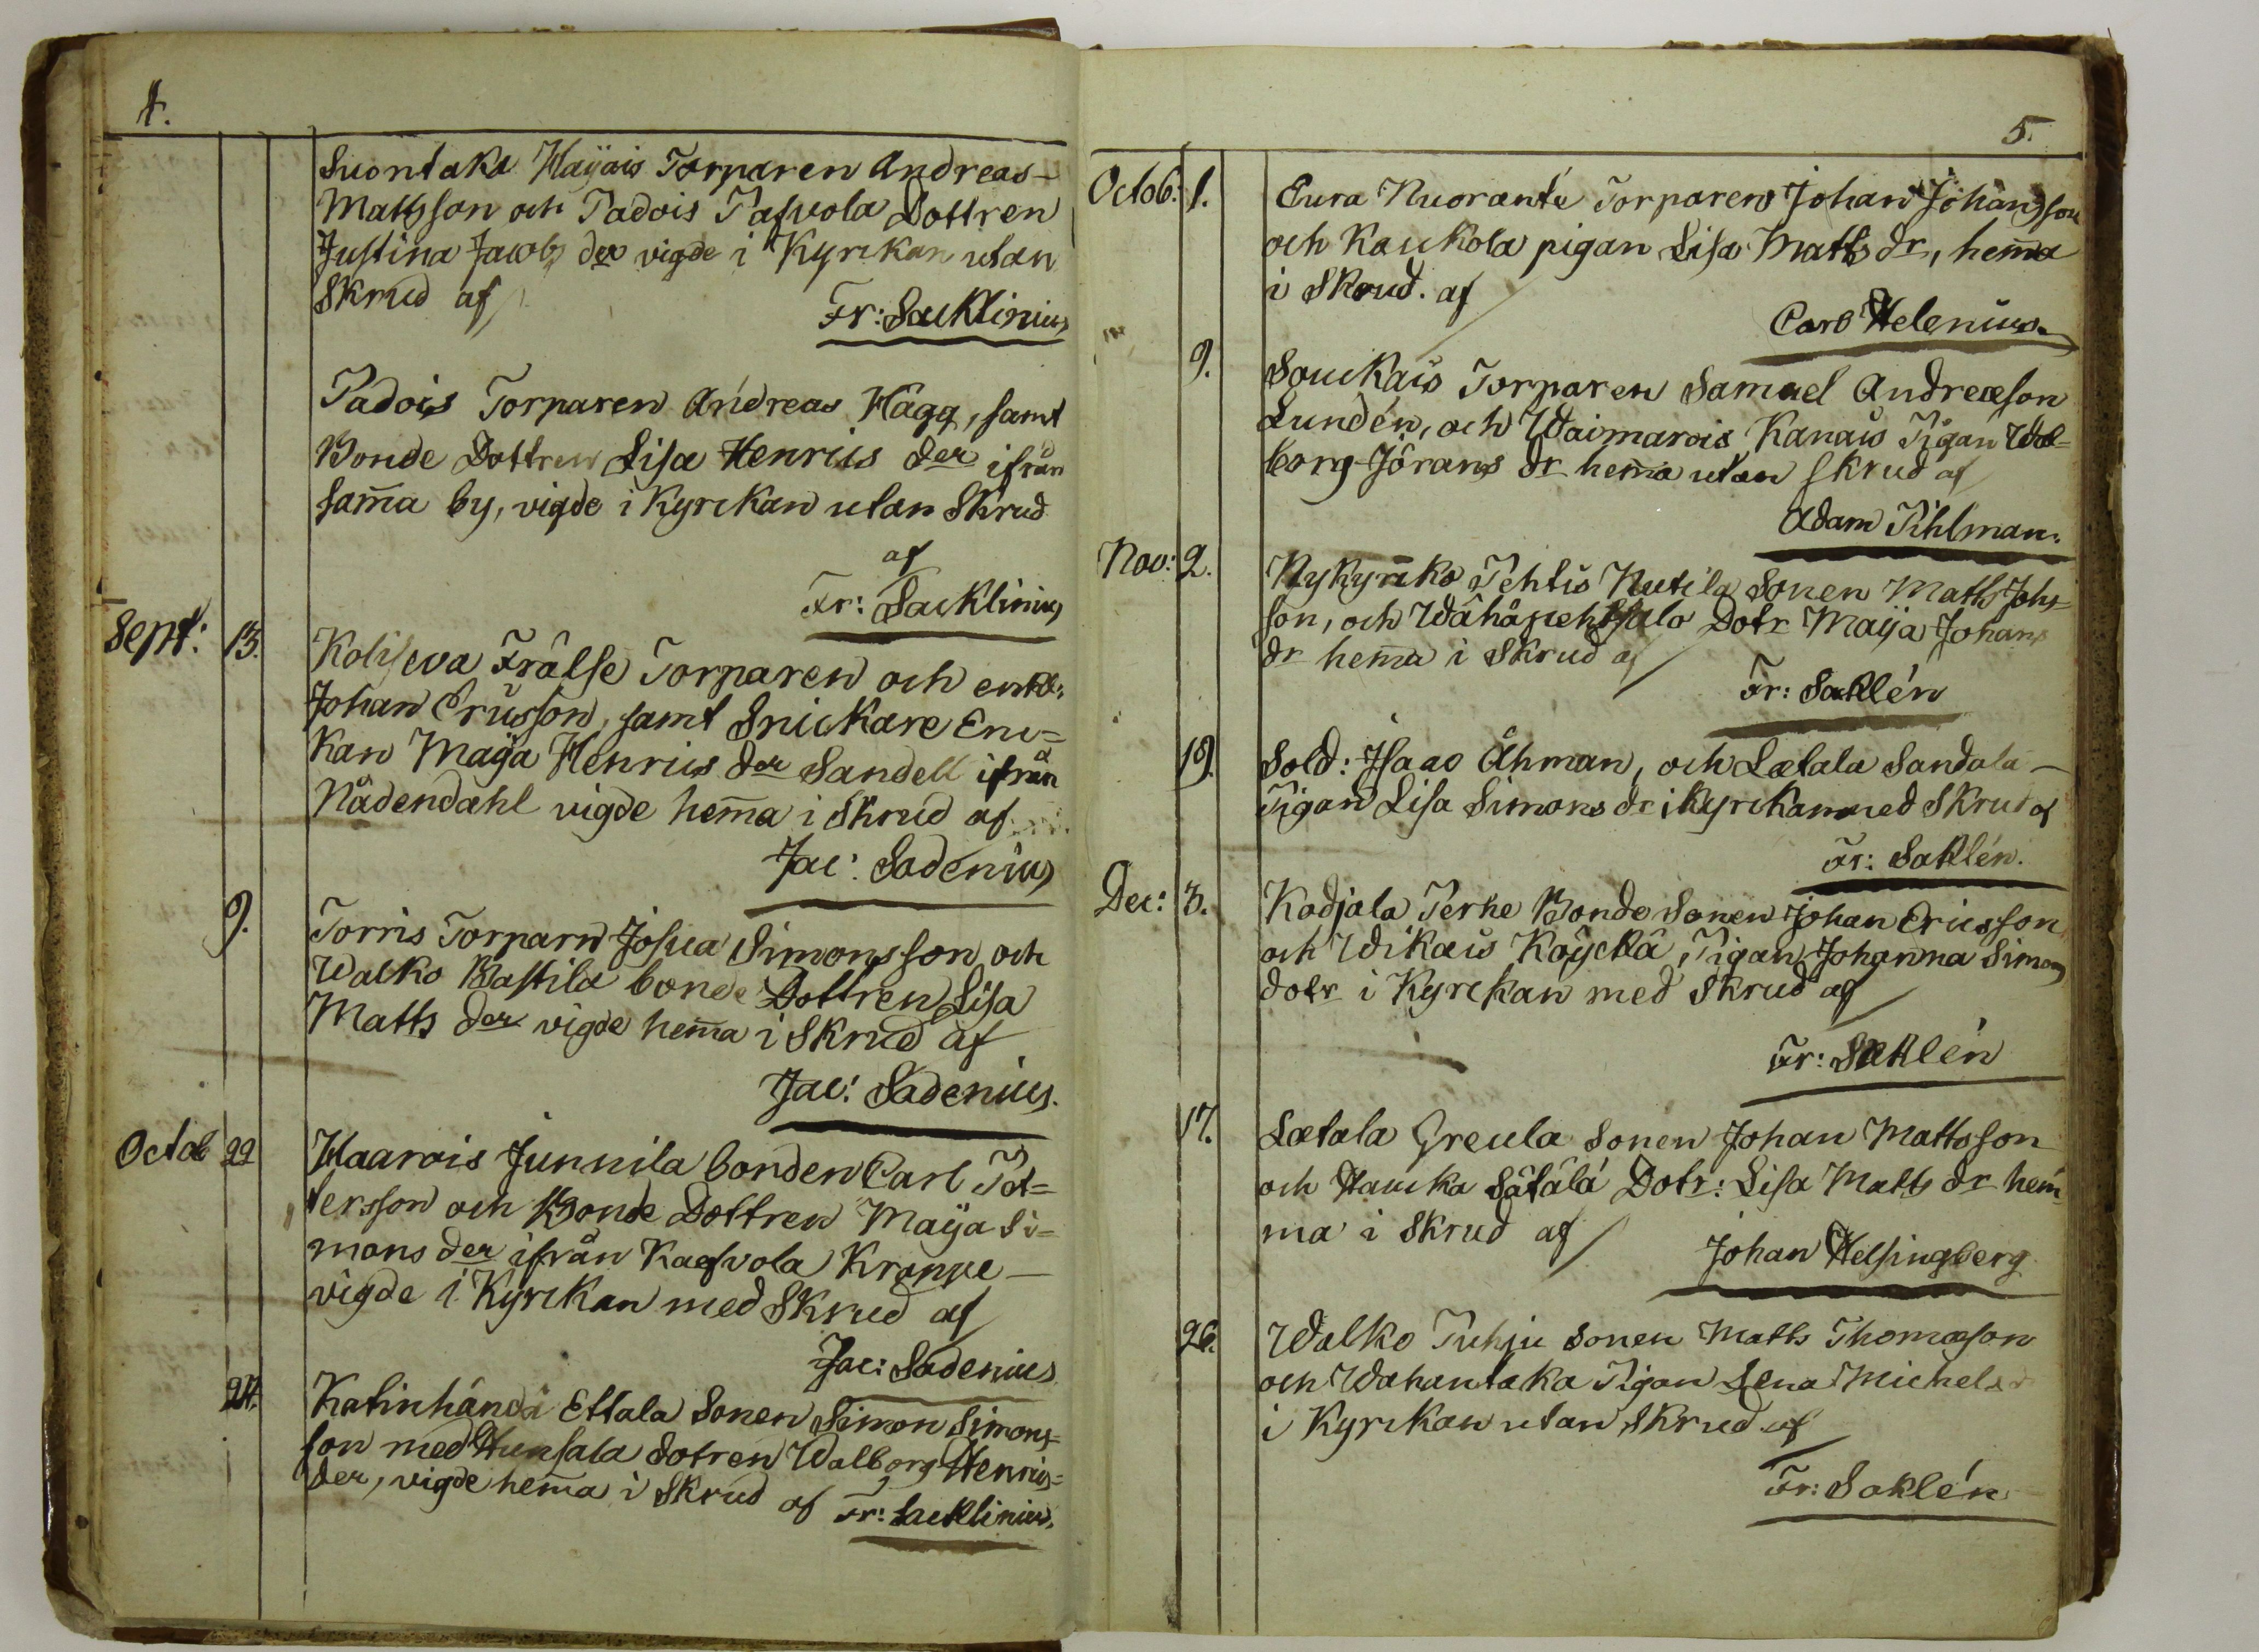 4.
Suontaka Häyäis Torparen Andreas-
Mattsson och Padois Pafvola Dottren
Justina Jacobs der vigde i Kyrckan utan
Skrud af
Fr: Sacklinius
Padois Torparen Andreas Hägg, samt
Bonde Dottren Lisa Henrics der ifrån
sam̄a by, vigde i Kyrckan utan Skrud
af
Fr: Sacklinius
Sept: 13. Koliseva Frälse Torparen och enkl:
Johan Ericsson, samt Snickare Enc=
kan Maija Henrics der Sandell ifrån
Nådendahl vigde hem̄a i Skrud af
Jac: Sadenius
9. Torris Torparn Josua Simonsson och
Walko Bastila bonde Dottren Lisa
Matts der vigde hem̄a i Skrud af
Jac: Sadenius.
Octob 22 Haarois Junnila bonden Carl Pet=
tersson och Bonde Dottren Maija Si=
mons der ifrån Kaafvola Kroppe-
vigde i Kyrckan med Skrud af
Jac: Sadenius
24. Katinhändä Ettala Sonen Simon Simons=
son med Hunsala dotren Walborg Henrics=
der, vigde hem̄a i Skrud af Fr: Sacklinius.
5.
Octob: 1. Eura Nuoranté Torparen Johan Johansson
och Kaukola pigan Lisa Matts dr, hem̄a
i Skrud. af
Carl Helenius.
9. Souckais Torparen Samuel Andreæson
Lundén, och Waimarois Kanais Pigan Wal=
borg Jörans dr hem̄a utan skrud af
Adam Pihlman.
Nov: 2. Nykyrcko Tehtis Nutila Sonen Matts Johs=
son, och Wähäpehtsalo Dotr Maija Johans
dr hem̄a i Skrud af
Fr: Saklén
19. Sold: Isaac Åhman, och Lætala Sandala-
Pigan Lisa Simons dr i Kyrckan med Skrud af
Fr: Saklén.
Dec: 3. Kodjala Perhe Bonde Sonen Johan Ericsson
och Wikais Köyckä, Pigan Johanna Simons
dotr i Kyrckan med Skrud af
Fr: Saklén
17. Lætala Greula Sonen Johan Mattsson
och Haucka Sätälä Dotr: Lisa Matts dr hem̄=
ma i Skrud af
Johan Helsingberg
26. Walko Tuhju Sonen Matts Thomæson
och Wahantaka Pigan Lena Michels dr
i Kyrckan utan Skrud af
Fr: Saklén